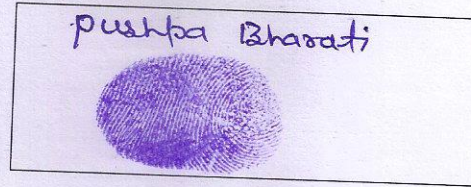 Pushpa Bharati